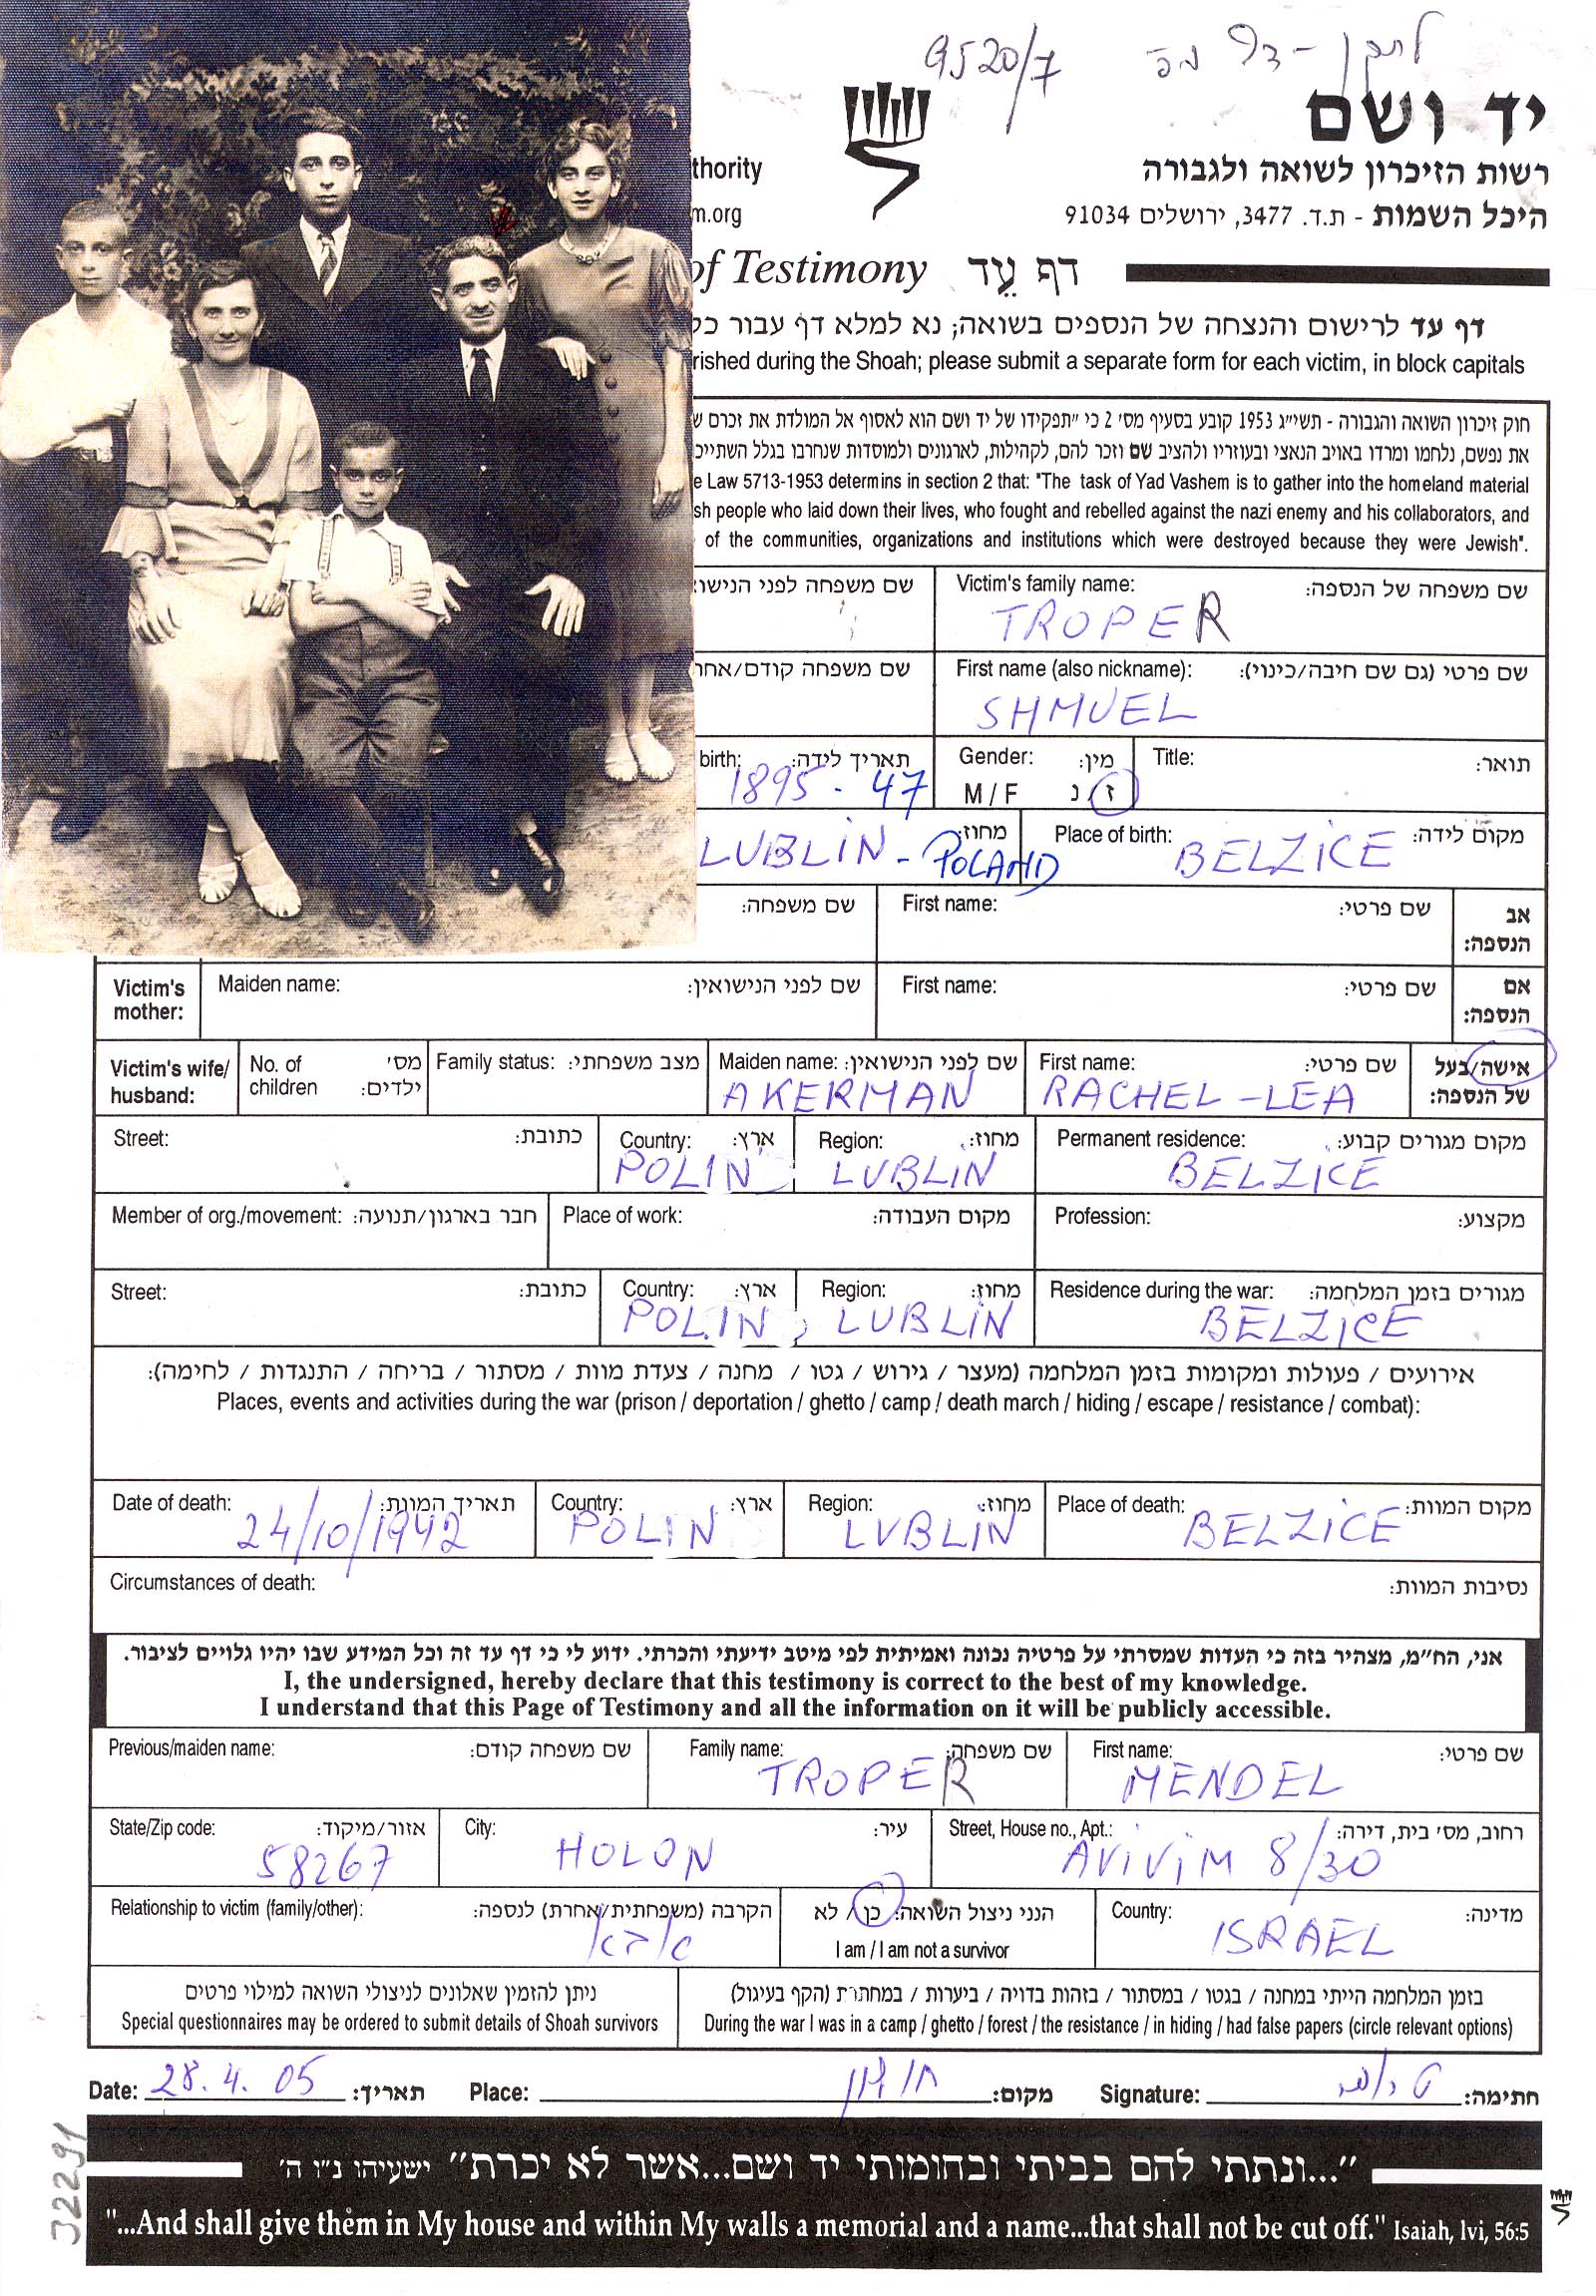 9520/7
יד ושם
thority רשות הזיכרון לשואה ולגבורה
m.org היכל השמות - ת.ד. 3477, ירושלים 91034
of Testimony דף עֵד
דף עד לרישום והנצחה של הנספים בשואה; נא למלא דף עבור כל
rished during the Shoah; please submit a separate form for each victim, in block capitals
חוק זיכרון השואה והגבורה - תשי״ג 1953 קובע בסעיף מס׳ 2 כי ״תפקידו של יד ושם הוא לאסוף אל המולדת את זכרם
את נפשם, נלחמו ומרדו באויב הנאצי ובעוזריו ולהציב שם וזכר להם, לקהילות, לארגונים ולמוסדות שנחרבו בגלל
e Law 5713-1953 determins in section 2 that: "The task of Yad Vashem is to gather into the homeland material
sh people who laid down their lives, who fought and rebelled against the nazi enemy and his collaborators, and
of the communities, organizations and institutions which were destroyed because they were Jewish".
שם משפחה לפני Victim's family name: שם משפחה של הנספה:
TROPER
שם משפחה קודם/אחר First name (also nickname): שם פרטי (גם שם חיבה/כינוי):
SHMUEL
birth: תאריך לידה: Gender: מין: Title: תואר:
1895 - 47 M / F ז / נ
מחוז: Place of birth: מקום לידה:
LUBLIN - POLAND BELZICE
שם משפחה: First name: שם פרטי: אב הנספה:
Victim's mother: Maiden name: שם לפני הנישואין: First name: שם פרטי: אם הנספה:
Victim's wife/ husband: No. of children מס׳ ילדים: Family status: מצב משפחתי: Maiden name: שם לפני הנישואין: First name: שם פרטי: אישה/בעל של הנספה:
AKERMAN RACHEL - LEA
Street: כתובת: Country: ארץ: Region: מחוז: Permanent residence: מקום מגורים קבוע:
POLIN LUBLIN BELZICE
Member of org./movement: חבר בארגון/תנועה: Place of work: מקום העבודה: Profession: מקצוע:
Street: כתובת: Country: ארץ: Region: מחוז: Residence during the war: מגורים בזמן המלחמה:
POLIN LUBLIN BELZICE
אירועים / פעולות ומקומות בזמן המלחמה (מעצר / גירוש / גטו / מחנה / צעדת מוות / מסתור / בריחה / התנגדות / לחימה):
Places, events and activities during the war (prison / deportation / ghetto / camp / death march / hiding / escape / resistance / combat):
Date of death: תאריך המוות: Country: ארץ: Region: מחוז: Place of death: מקום המוות:
24/10/1942 POLIN LUBLIN BELZICE
Circumstances of death: נסיבות המוות:
אני, הח״מ, מצהיר בזה כי העדות שמסרתי על פרטיה נכונה ואמיתית לפי מיטב ידיעתי והכרתי. ידוע לי כי דף עד זה וכל המידע שבו יהיו גלויים לציבור.
I, the undersigned, hereby declare that this testimony is correct to the best of my knowledge.
I understand that this Page of Testimony and all the information on it will be publicly accessible.
Previous/maiden name: שם משפחה קודם: Family name: שם משפחה: First name: שם פרטי:
TROPER MENDEL
State/Zip code: אזור/מיקוד: City: עיר: Street, House no., Apt.: רחוב, מס׳ בית, דירה:
58267 HOLON AVIVIM 8/30
Relationship to victim (family/other): הקרבה (משפחתית/אחרת) לנספה: הנני ניצול השואה: כן / לא Country: מדינה:
אבא I am / I am not a survivor ISRAEL
ניתן להזמין שאלונים לניצולי השואה למילוי פרטים בזמן המלחמה הייתי במחנה / בגטו / במסתור / בזהות בדויה / ביערות / במחתרת (הקף בעיגול)
Special questionnaires may be ordered to submit details of Shoah survivors During the war I was in a camp / ghetto / forest / the resistance / in hiding / had false papers (circle relevant options)
Date: 28.4.05 תאריך: Place: חולון מקום: Signature: חתימה:
32291
״...ונתתי להם בביתי ובחומותי יד ושם...אשר לא יכרת״ ישעיהו נ״ו ה׳
"...And shall give them in My house and within My walls a memorial and a name...that shall not be cut off." Isaiah, lvi, 56:5